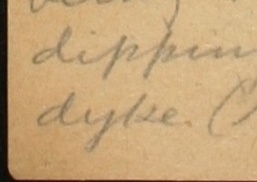 dippin
dyke. (